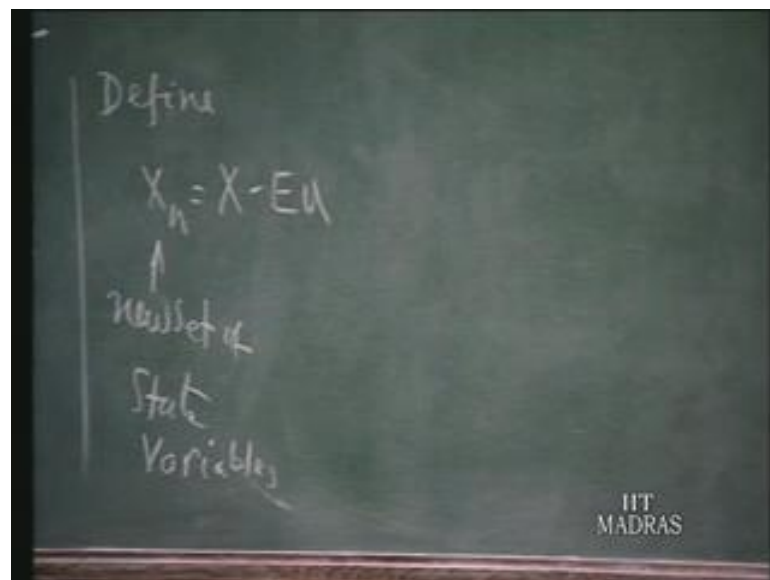 Define
Xn = X - Eu
New Set of
State
Variables
IIT
MADRAS